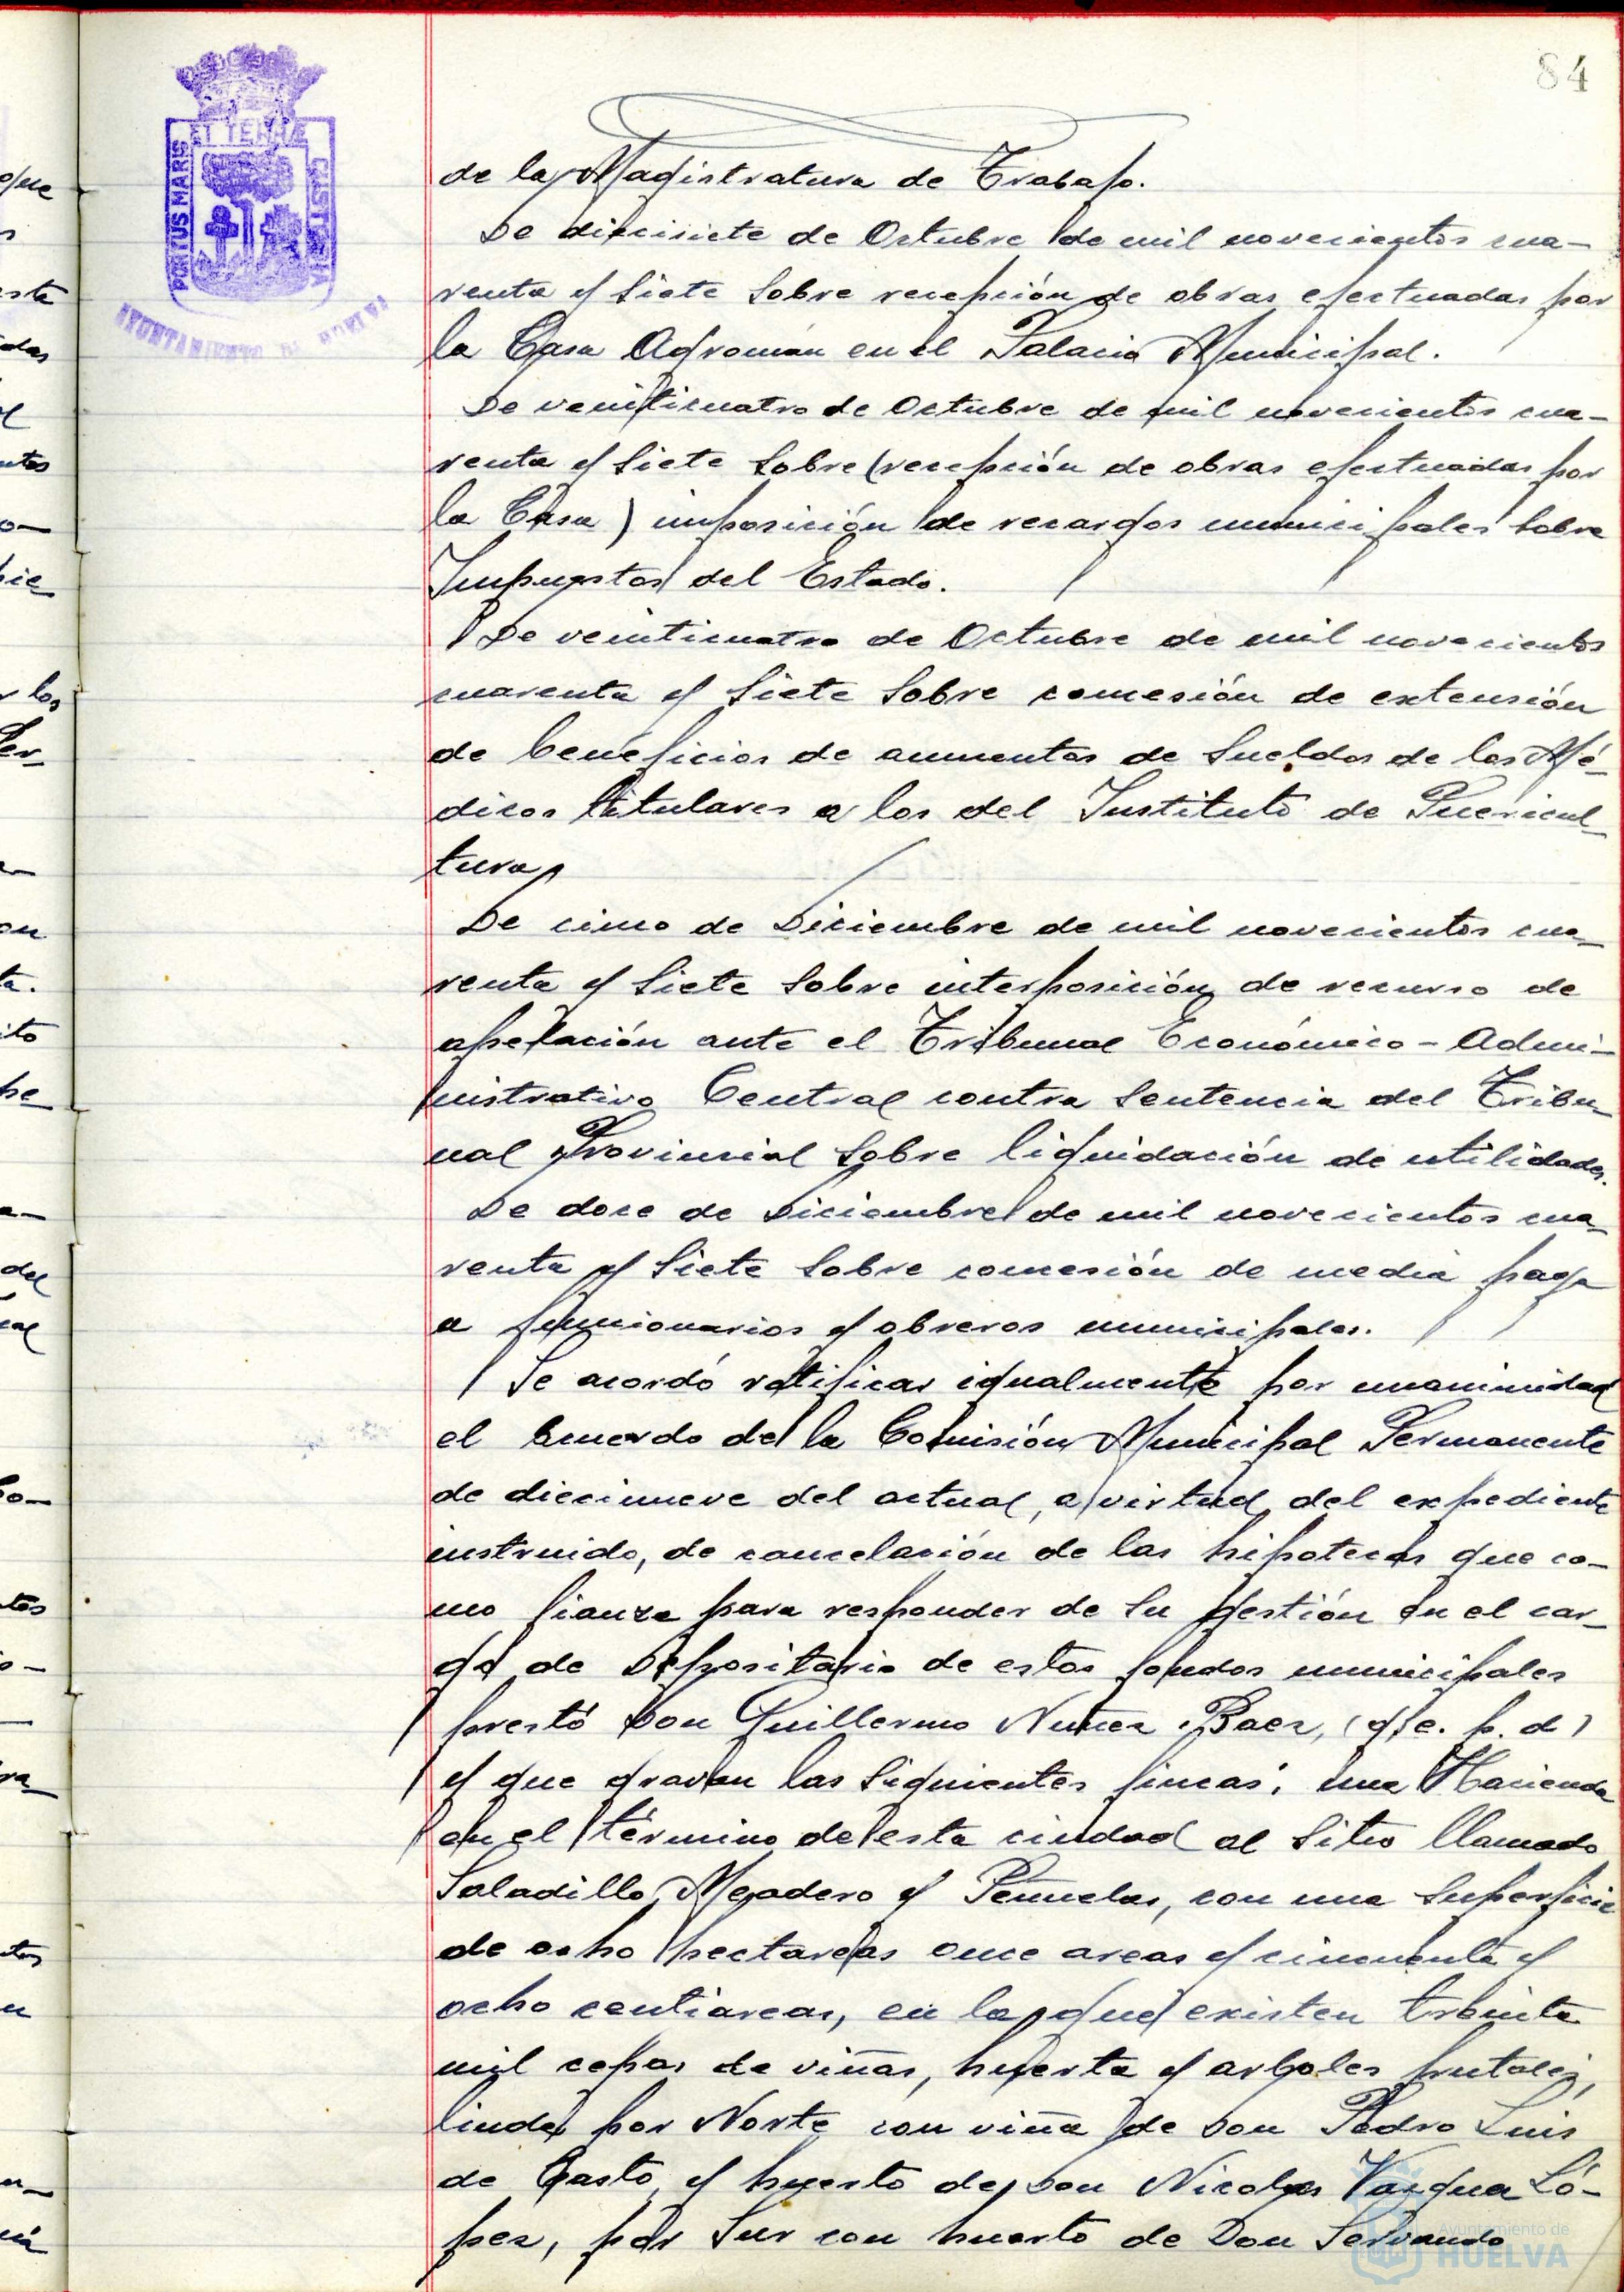 84
PORTUS MARIS ET TERRÆ CUSTODIA
AYUNTAMIENTO DE HUELVA
de la Magistratura de Trabajo.
De diecisiete de Octubre de mil novecientos cua-
renta y siete sobre recepción de obras efectuadas por
la Casa Agromán en el Palacio Municipal.
De veinticuatro de Octubre de mil novecientos cua-
renta y siete sobre (recepción de obras efectuadas por
la Casa) imposición de recargos municipales sobre
Impuestos del Estado.
De veinticuatro de Octubre de mil novecientos
cuarenta y siete sobre concesión de extensión
de beneficios de aumentos de sueldos de los Mé-
dicos titulares a los del Instituto de Puericul-
tura,
De cinco de Diciembre de mil novecientos cua-
renta y siete sobre interposición de recurso de
apelación ante el Tribunal Económico-Admi-
nistrativo Central contra sentencia del Tribu-
nal Provincial sobre liquidación de utilidades.
De doce de Diciembre de mil novecientos cua-
renta y siete sobre concesión de media paga
a funcionarios y obreros municipales.
Se acordó ratificar igualmente por unanimidad
el acuerdo de la Comisión Municipal Permanente
de diecinueve del actual, a virtud del expediente
instruido, de cancelación de las hipotecas que co-
mo fianza para responder de su gestión en el car-
go de Depositario de estos fondos municipales
prestó Don Guillermo Nuñez Baez, (q. e. p. d)
y que gravan las siguientes fincas: una Hacienda
en el término de esta ciudad al sitio llamado
Saladillo, Meadero y Peñuelas, con una superficie
de ocho hectareas once areas y cincuenta y
ocho centiareas, en la que existen treinta
mil cepas de viñas, huerta y arboles frutales,
linda por Norte con viña de Don Pedro Luis
de Casto y huerto de Don Nicolas Vazquez Ló-
pez, por Sur con huerto de Don Servando
Ayuntamiento de
HUELVA